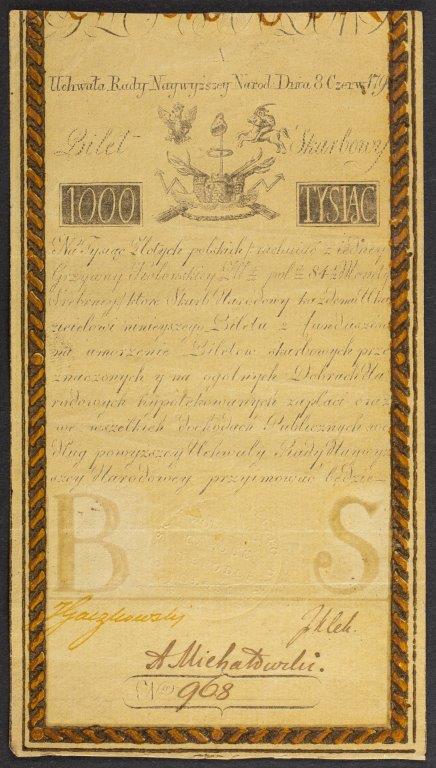 A
Uchwała Rady Naywyższey Narod: Dnia 8 Czerw: 179
Bilet Skarbowy
1000 TYSIĄC
Na Tysiąc Złotych polskich rachuiąc z iedney
Grzywny Kolońskiey pol: 84½ Monety
Srebrney, ktore Skarb Narodowy każdemu Oka
zicielowi ninieyszego Biletu z funduszow
na umorzenie Biletow skarbowych prze
znaczonych y na ogolnych Dobrach Na
rodowych hypotekowanych zapłaci oraz
we wszelkich dochodach Publicznych we
dług powyższey Uchwały Rady Naywyż
szey Narodowey przyimować będzie
B S
Gaczkowski
J Klek.
A Michałowski.
968